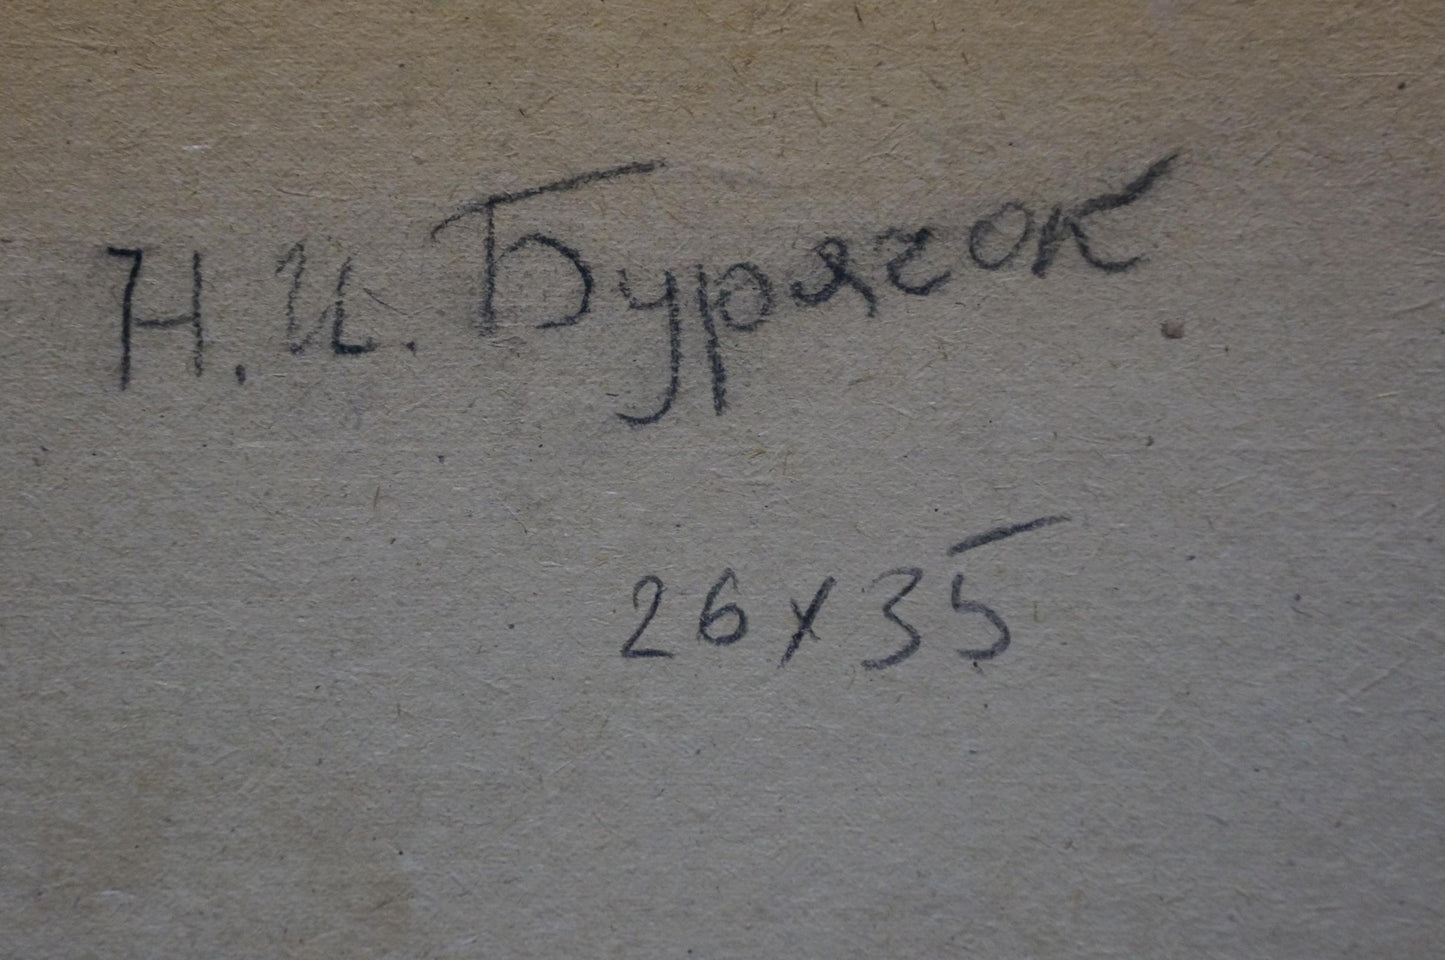 Н. И. Бурячок
26х35